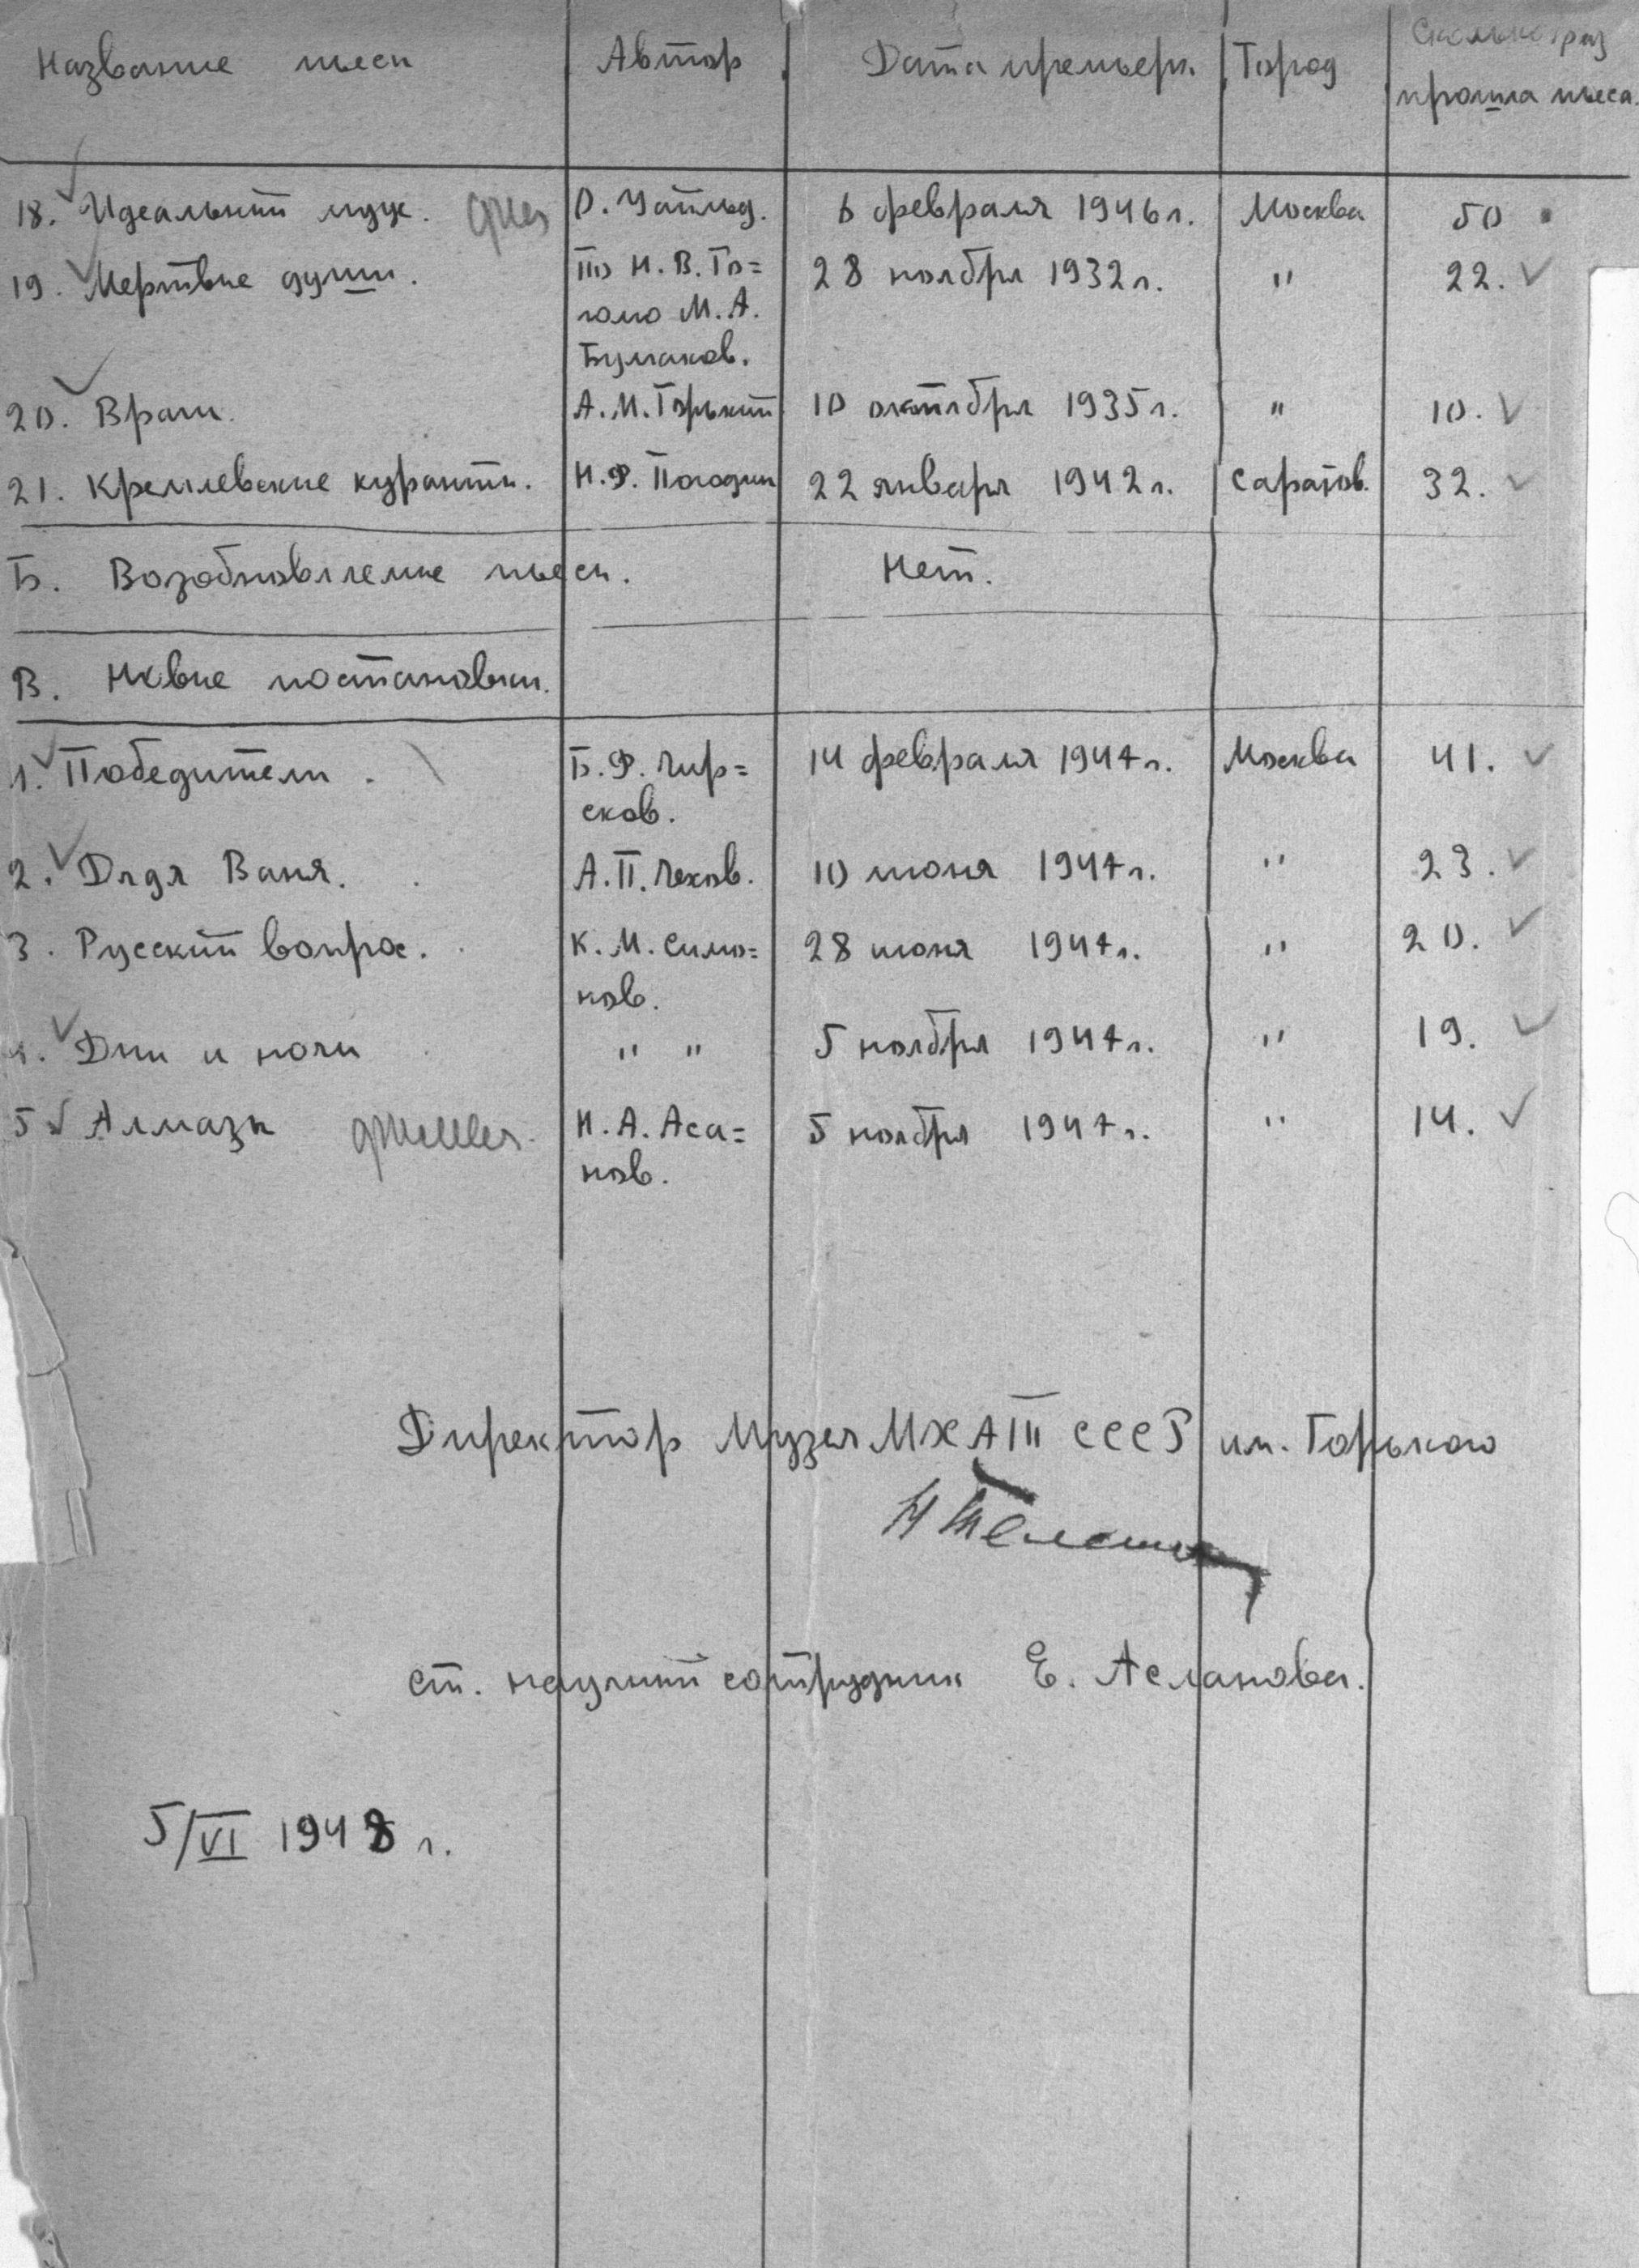 Название пьесы Автор Дата премьеры. Город Сколько раз
прошла пьеса.
18. Идеальный муж. О. Уайльд. 6 февраля 1946 г. Москва 50
19. Мертвые души. По Н. В. Го=
голю М. А.
Булгаков. 28 ноября 1932 г. " 22.
20. Враги. А. М. Горький 10 октября 1935 г. " 10.
21. Кремлевские куранты. Н. Ф. Погодин 22 января 1942 г. Саратов. 32.
Б. Возобновляемые пьесы. Нет.
В. Новые постановки.
1. Победители. Б. Ф. Чир=
сков. 14 февраля 1947 г. Москва 41.
2. Дядя Ваня. А. П. Чехов. 10 июня 1947 г. " 23.
3. Русский вопрос. К. М. Симо=
нов. 28 июня 1947 г. " 20.
4. Дни и ночи " " 5 ноября 1947 г. " 19.
5 Алмазы Н. А. Аса=
нов. 5 ноября 1947 г. " 14.
Директор Музея МХАТ СССР им. Горького
Н Телешов
Ст. научный сотрудник Е. Асланова.
5/VI 1948 г.